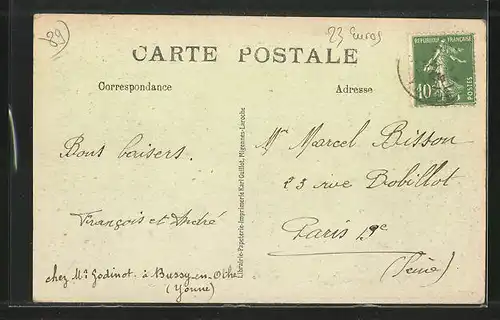 89
23 Euros
CARTE POSTALE
REPUBLIQUE FRANÇAISE
40c
POSTES
Correspondance
Adresse
Bons baisers.
François et André
chez Mr Godinot. à Bussy-en-Othe
(Yonne)
Librairie-Papeterie-Imprimerie Karl Guillot, Migennes-Laroche
Mr Marcel Bisson
23 rue Bobillot
Paris 13e
(Seine)